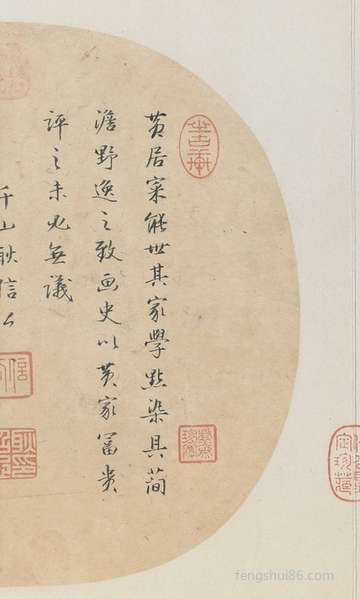 黄居寀能世其家學點染具蕳
澹野逸之致畫史以黄家冨貴
評之未必無議
千山耿信公
書衡
fengshui86.com